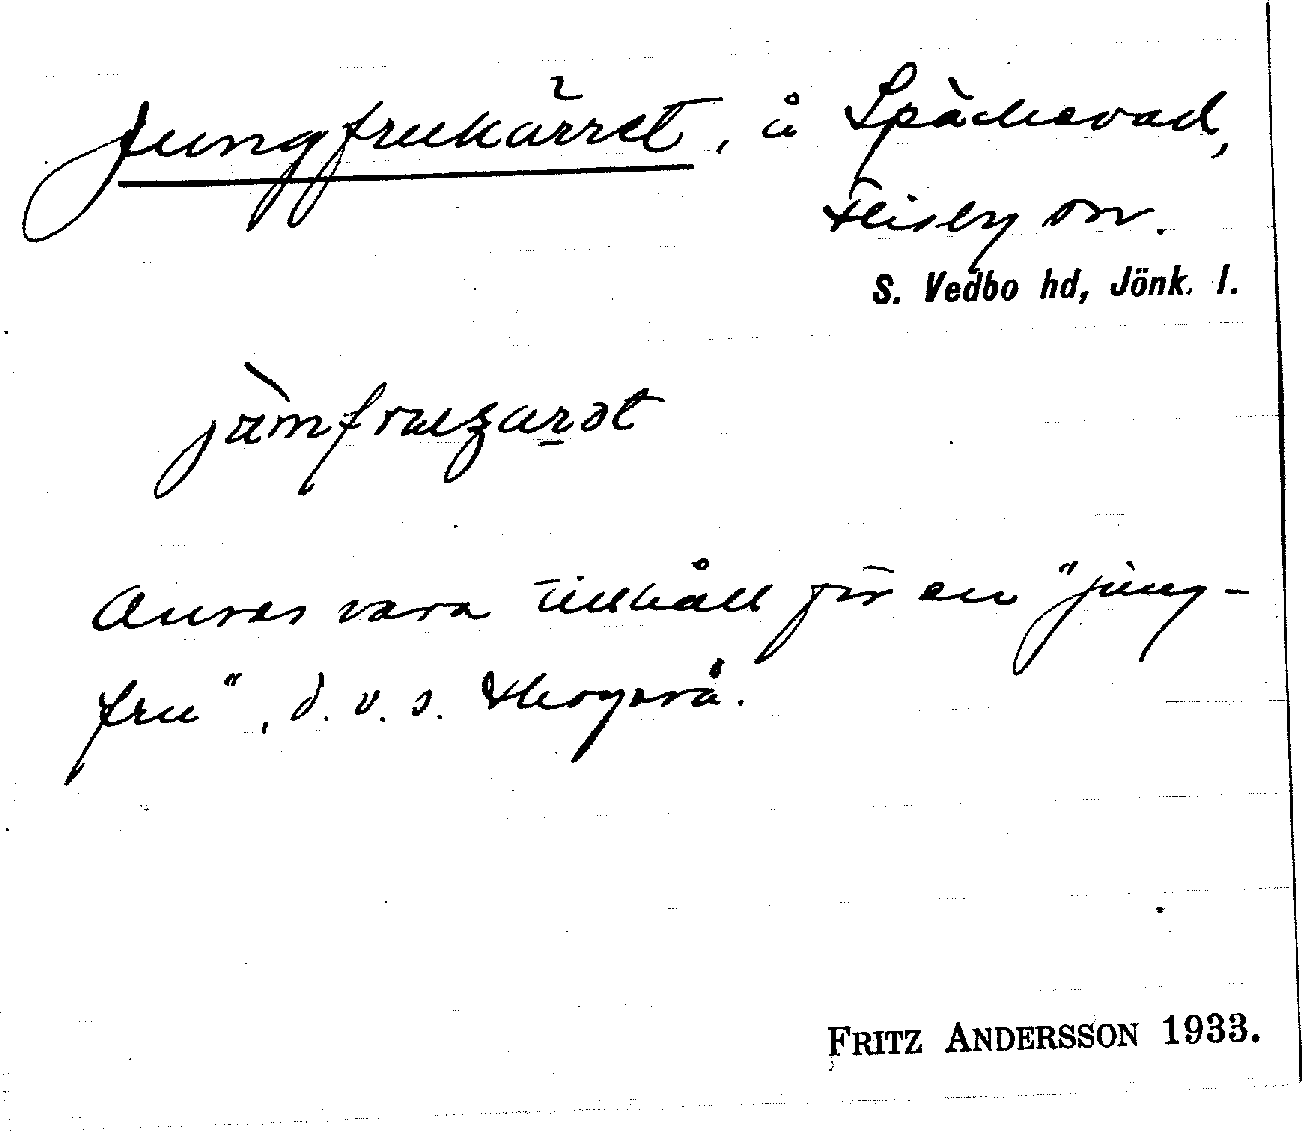 Jungfrukärret, å Späckevad,
Flisby sn.
S. Vedbo hd, Jönk. l.
Anses vara tillhåll för en "jung-
fru", d.v.s. skogsrå.
FRITZ ANDERSSON 1933.